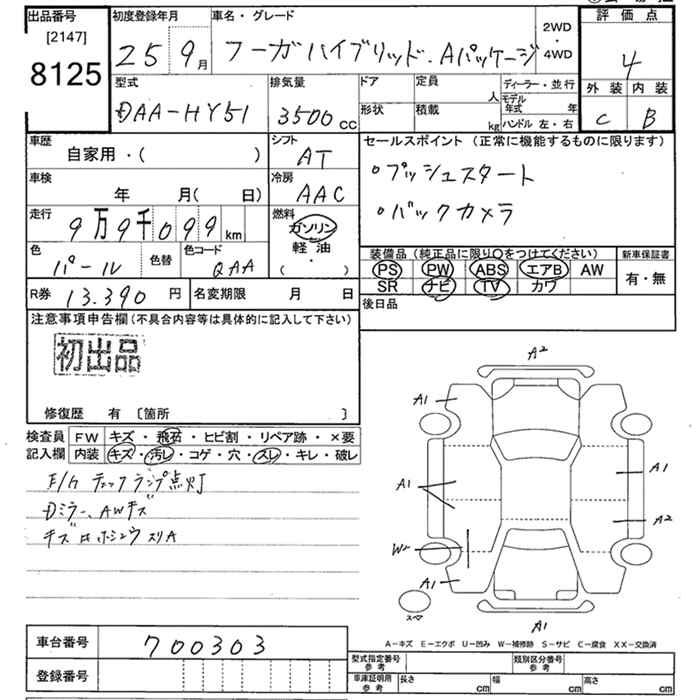 出品番号
[2147]
8125
初度登録年月
25 9月
車名・グレード
フーガハイブリッド.Aパッケージ
2WD
・
4WD
評価点
4
外装 内装
C B
型式
DAA-HY51
排気量
3500 CC
ドア
形状
定員
人
積載
kg
ディーラー・並行
モデル年式 年
ハンドル 左・右
車歴
自家用・( )
シフト
AT
車検
年 月( 日)
冷房
AAC
走行
9万9千099 km
燃料
ガソリン
軽油
( ・ )
色
パール
色替
色コード
QAA
R券 13.390 円
名変期限 月 日
セールスポイント(正常に機能するものに限ります)
・プッシュスタート
・バックカメラ
装備品(純正品に限り○をつけてください)
PS PW ABS エアB AW
SR ナビ TV カワ
新車保証書
有・無
後日品
注意事項申告欄(不具合内容等は具体的に記入して下さい)
初出品
修復歴 有 [箇所 ]
検査員記入欄
FW キズ・飛石・ヒビ割・リペア跡・×要
内装 キズ・汚レ・コゲ・穴・スレ・キレ・破レ
E/Gチェックランプ点灯
Dミラー、AWキズ
A2
A1
A1
A1
A2
W
A1
A1
スペア
A-キズ E-エクボ U-凹み W-補修跡 S-サビ C-腐食 XX-交換済
車台番号 700303
登録番号
型式指定番号 参考
類別区分番号 参考
車庫証明用 参考
長さ cm
幅 cm
高さ cm